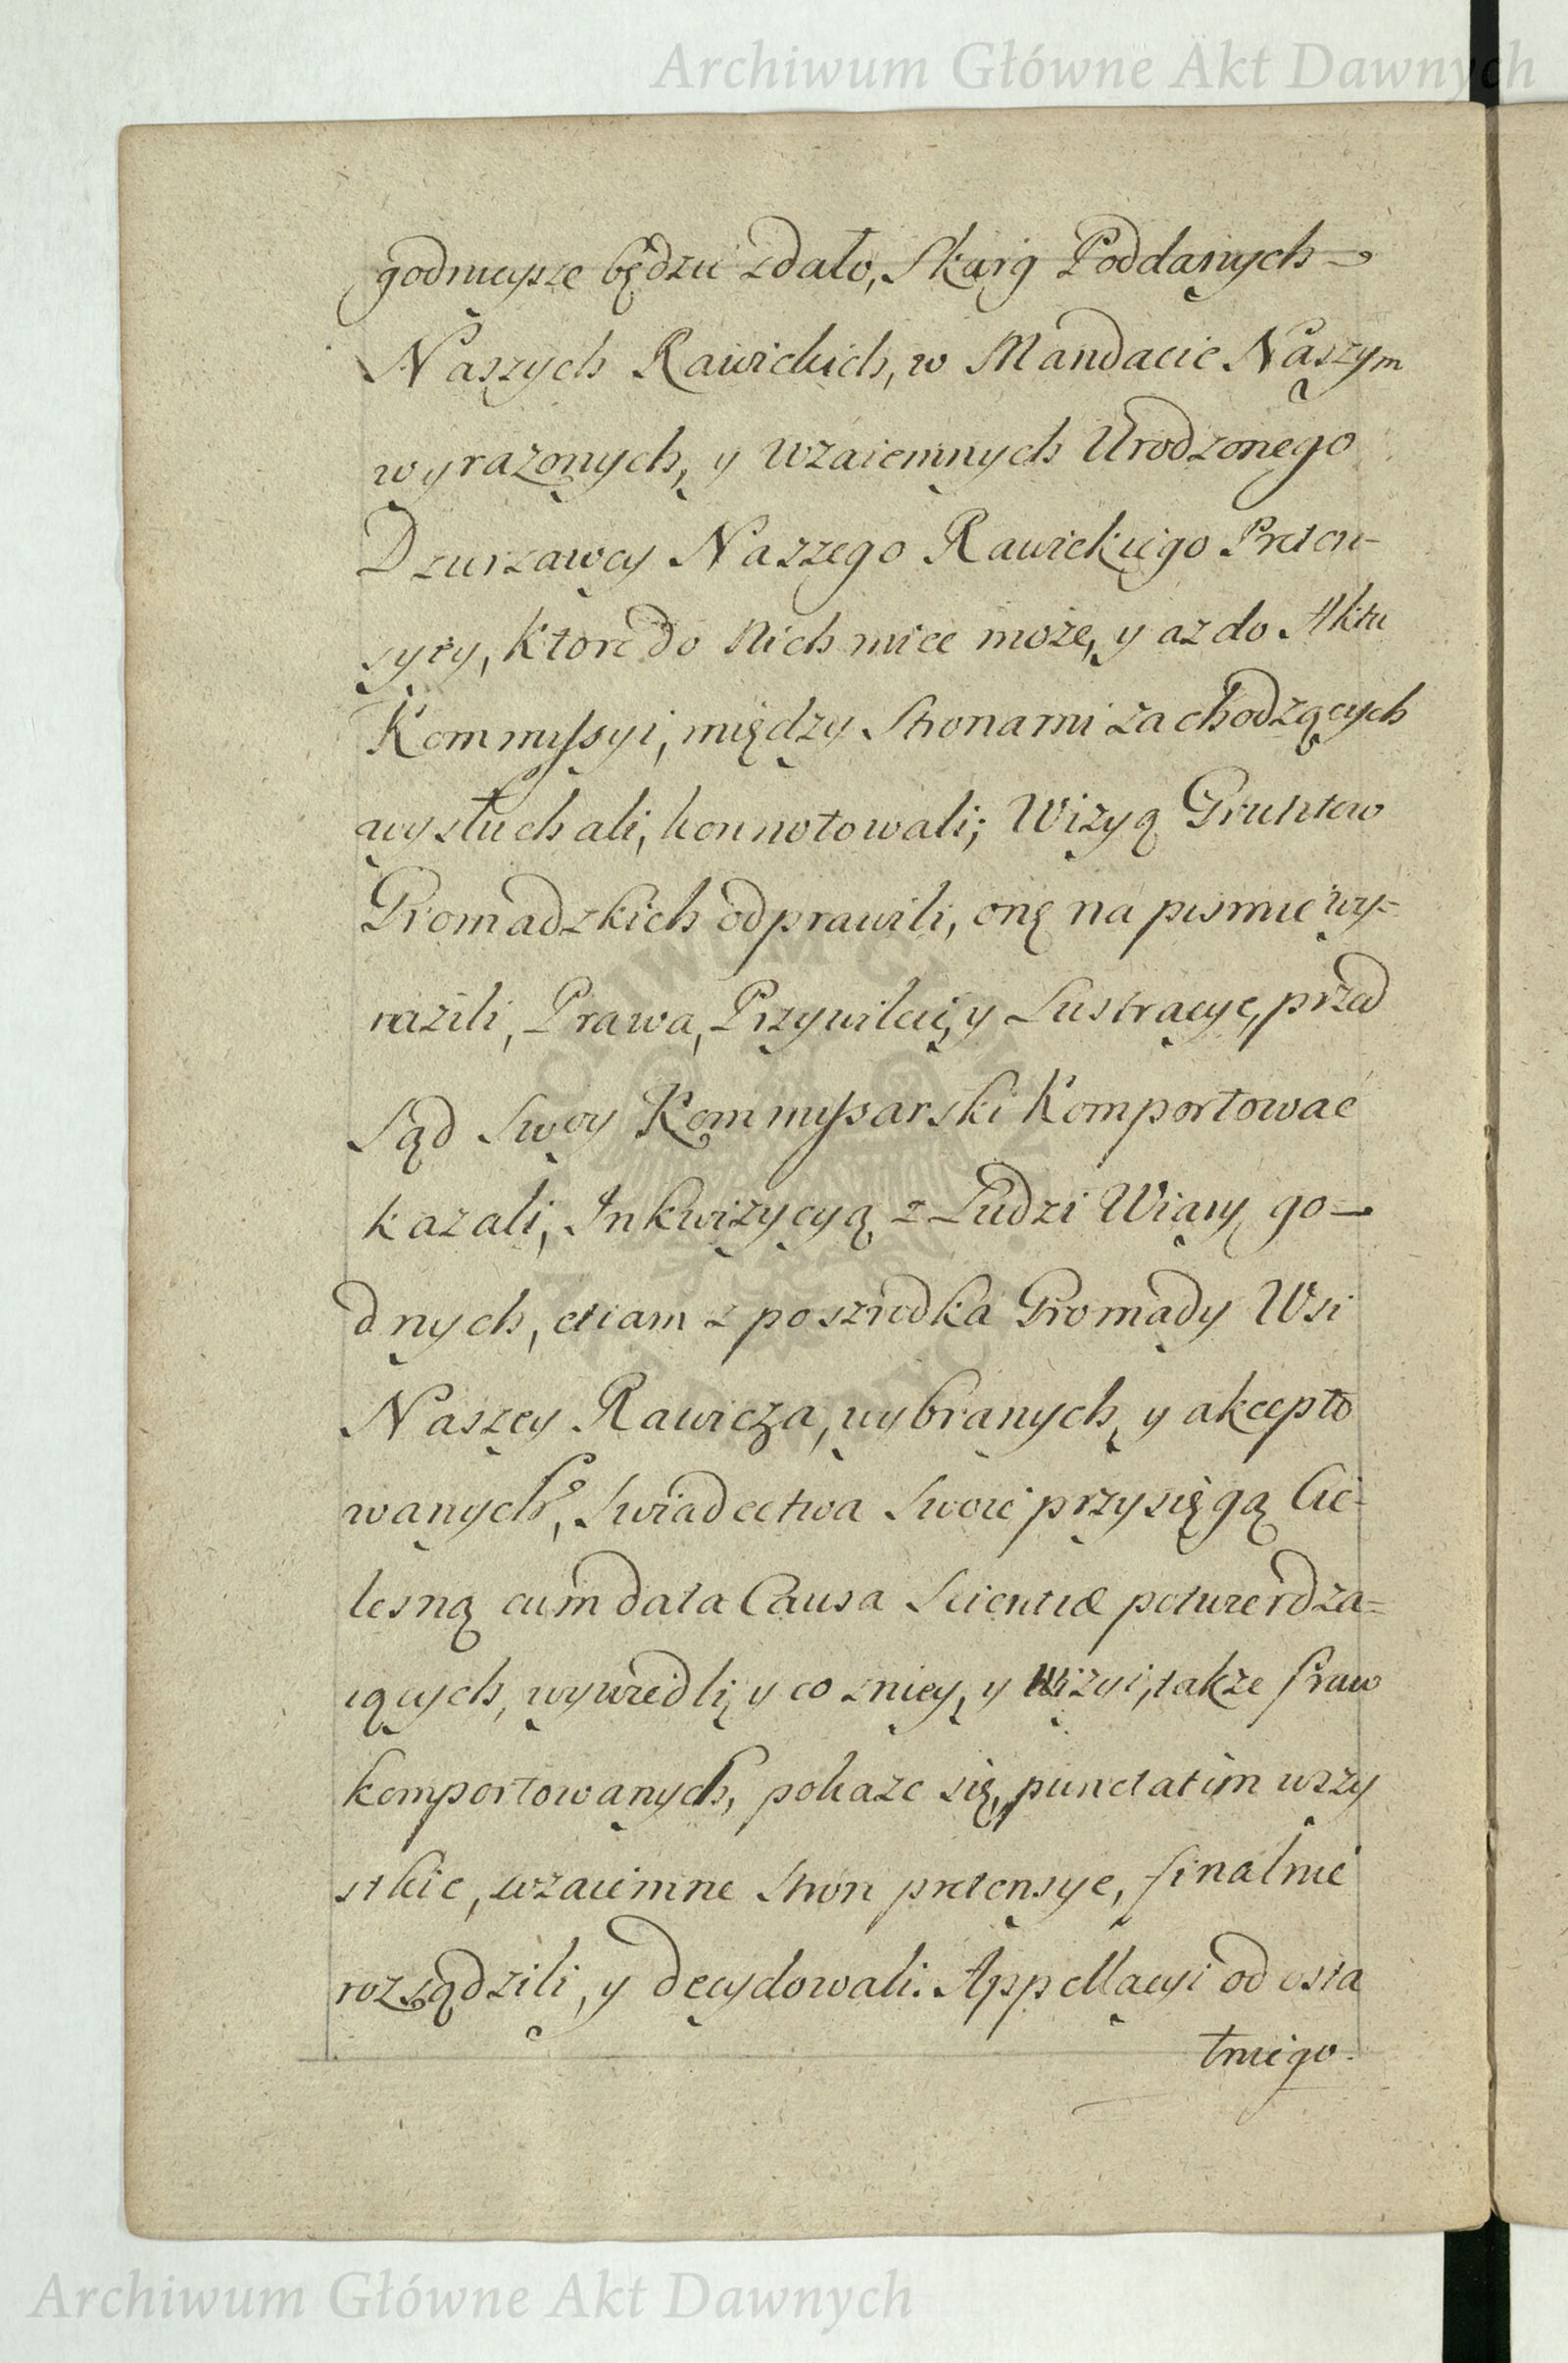 Archiwum Główne Akt Dawnych
godnieysze będzie zdało, Skarg Poddanych
Naszych Rawickich, w Mandacie Naszym
wyrazonych, y wzaiemnych Urodzonego
Dzierzawcy Naszego Rawickiego Preten-
syey, ktore do Nich miec może, y az do Aktu
Kommyssyi, między Stronami zachodzących
wysłuchali, konnotowali; Wizyą Gruntow
Gromadzkich odprawili, onę na pismie wy=
razili, Prawa, Przywileie, y Lustracye, przed
Sąd Swoy Kommyssarski Komportowac
kazali, Inkwizycyą z Ludzi Wiary go-
dnych, etiam z poszrodka Gromady Wsi
Naszey Rawicza, wybranych, y akcepto
wanych, Swiadectwa Swoie przysięgą Cie-
lesną cum data Causa Scientiæ potwierdza=
iących, wywiedli, y co z niey, y Wizyi, takze Praw
komportowanych, pokaze się, punctatim wszy
stkie, wzaiemne Stron pretensye, finalnie
rozsądzili, y decydowali. Appellacyi od osta
tniego
ARCHIWUM GŁÓWNE AKT DAWNYCH
Archiwum Główne Akt Dawnych